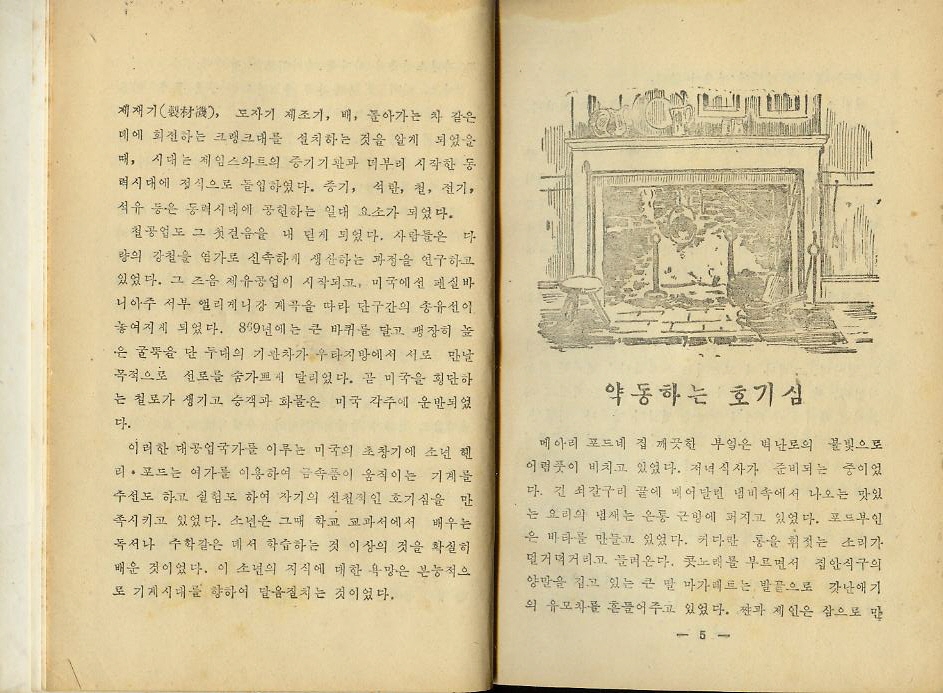 제재기(製材機), 도자기 제조기, 배, 돌아가는 차 같은
데에 회전하는 크랭크대를 설치하는 것을 알게 되었을
때, 시대는 제임스와트의 증기기관과 더부러 시작한 동
력시대에 정식으로 돌입하였다. 증기, 석탄, 철, 전기,
석유 등은 동력시대에 공헌하는 일대 요소가 되었다.
철공업도 그 첫걸음을 내 딛게 되었다. 사람들은 다
량의 강철을 염가로 신속하게 생산하는 과정을 연구하고
있었다. 그 즈음 제유공업이 시작되고, 미국에선 펜실바
니아주 서부 앨리게니강 계곡을 따라 단구간의 송유선이
놓여지게 되었다. 869년에는 큰 바퀴를 달고 굉장히 높
은 굴뚝을 단 두대의 기관차가 우타지방에서 서로 만날
목적으로 선로를 숨가쁘게 달리었다. 곧 미국을 횡단하
는 철로가 생기고 승객과 화물은 미국 각주에 운반되었
다.
이러한 대공업국가를 이루는 미국의 초창기에 소년 헨
리·포드는 여가를 이용하여 금속품이 움직이는 기계를
수선도 하고 실험도 하여 자기의 선천적인 호기심을 만
족시키고 있었다. 소년은 그때 학교 교과서에서 배우는
독서나 수학같은 데서 학습하는 것 이상의 것을 확실히
배운 것이었다. 이 소년의 지식에 대한 욕망은 본능적으
로 기계시대를 향하여 달음질치는 것이었다.
약동하는 호기심
메아리 포드네 집 깨끗한 부엌은 벽난로의 불빛으로
어렴풋이 비치고 있었다. 저녁식사가 준비되는 중이었
다. 긴 쇠갈구리 끝에 메어달린 냄비속에서 나오는 맛있
는 요리의 냄새는 온통 근방에 퍼지고 있었다. 포드부인
은 바타를 만들고 있었다. 커다란 통을 휘젓는 소리가
덜거덕거리고 들려온다. 콧노래를 부르면서 집안식구의
양말을 깁고 있는 큰 딸 마가레트는 발끝으로 갓난애기
의 유모차를 흔들어주고 있었다. 쨘과 제인은 삼으로 만
— 5 —